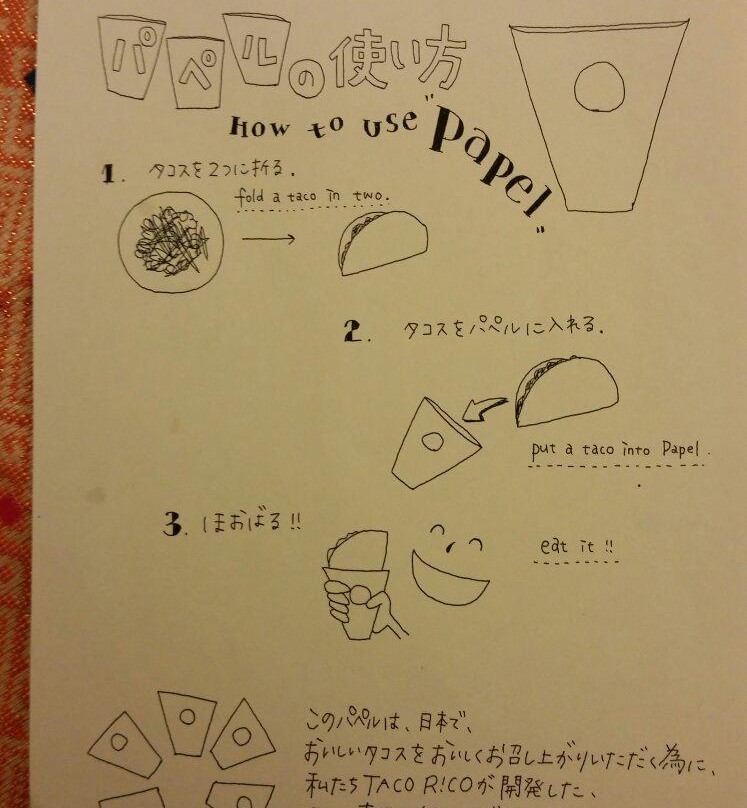 パペルの使い方
How to use "Papel"
1. タコスを2つに折る.
fold a taco in two.
2. タコスをパペルに入れる.
put a taco into Papel.
3. ほおばる!!
eat it!!
このパペルは、日本で、
おいしいタコスをおいしくお召し上がりいただく為に、
私たちTACO R!COが開発した、